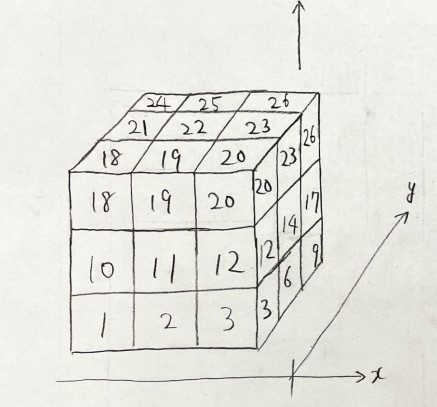 24 25 26
21 22 23
18 19 20
18 19 20
10 11 12
1 2 3
20 23 26
12 14 17
3 6 9
y
x